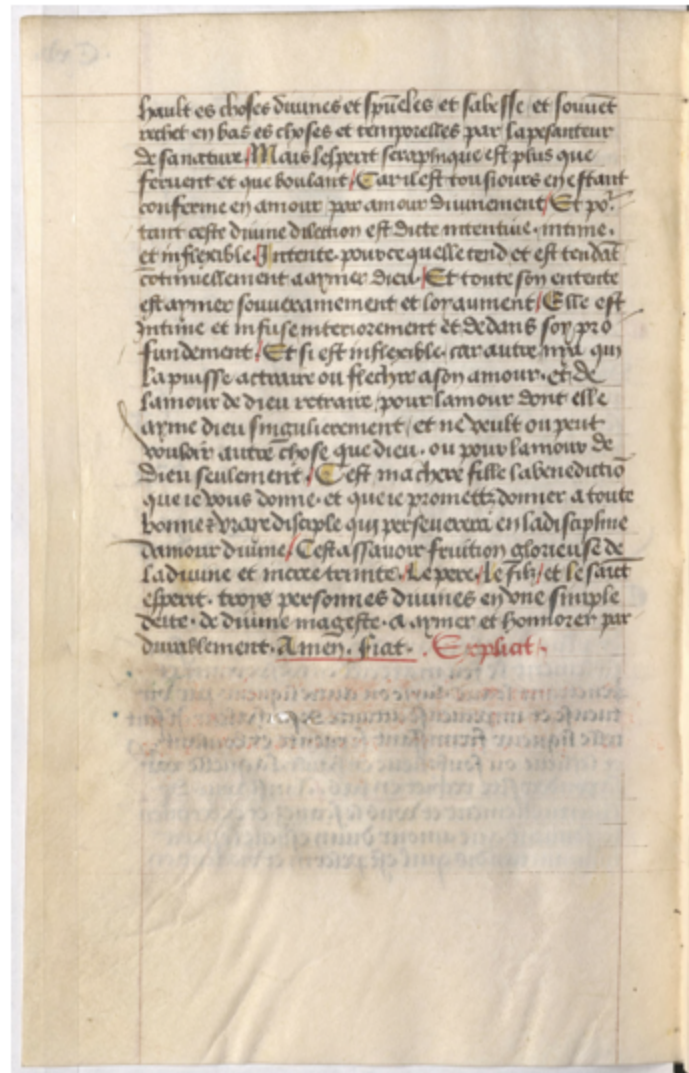 hault es choses diuines et spũeles et sabesse et souuẽt
rechet en bas es choses et temporelles par la pesanteur
de sa nature / Mais lesperit seraphique est plus que
feruent et que boulant / Car il est tousiours en estant
conferme en amour par amour diuinement / Et po
tant ceste diuine dilection est dicte intentiue. intime.
et inflexible / Intente. pource quelle tend et est tendãt
cõtinuellement a aymer dieu / Et toute son entente
est aymer souuerainement et loyaument / Elle est
Intime et infuse interiorement et dedans soy pro
fundement / Et si est inflexible. car autre nya qui
la puisse actraire ou flechir a son amour. et de
lamour de dieu retraire pour lamour dont elle
ayme dieu singulierement / et ne veult ou peut
vouloir autre chose que dieu. ou pour lamour de
dieu seulement / Cest ma chere fille la benedictiõ
que ie vous donne. et que ie promettz donner a toute
bonne vraye disciple qui perseuerera en la discipline
damour diuine / Cest assauoir fruition glorieuse de
la diuine et incree trinite. Le pere / le filz / et le saĩct
esperit. troys personnes diuines en vne simple
deite. de diuine mageste. a aymer et honnorer par
durablement. Amen. fiat. Explicit.